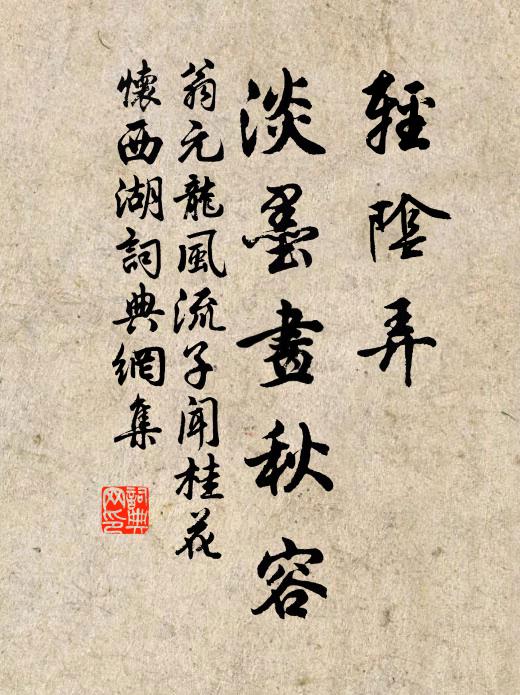 輕陰弄
淡墨畫秋容
翁元龍風流子聞桂花
懷西湖詞典網集
詞典
网印